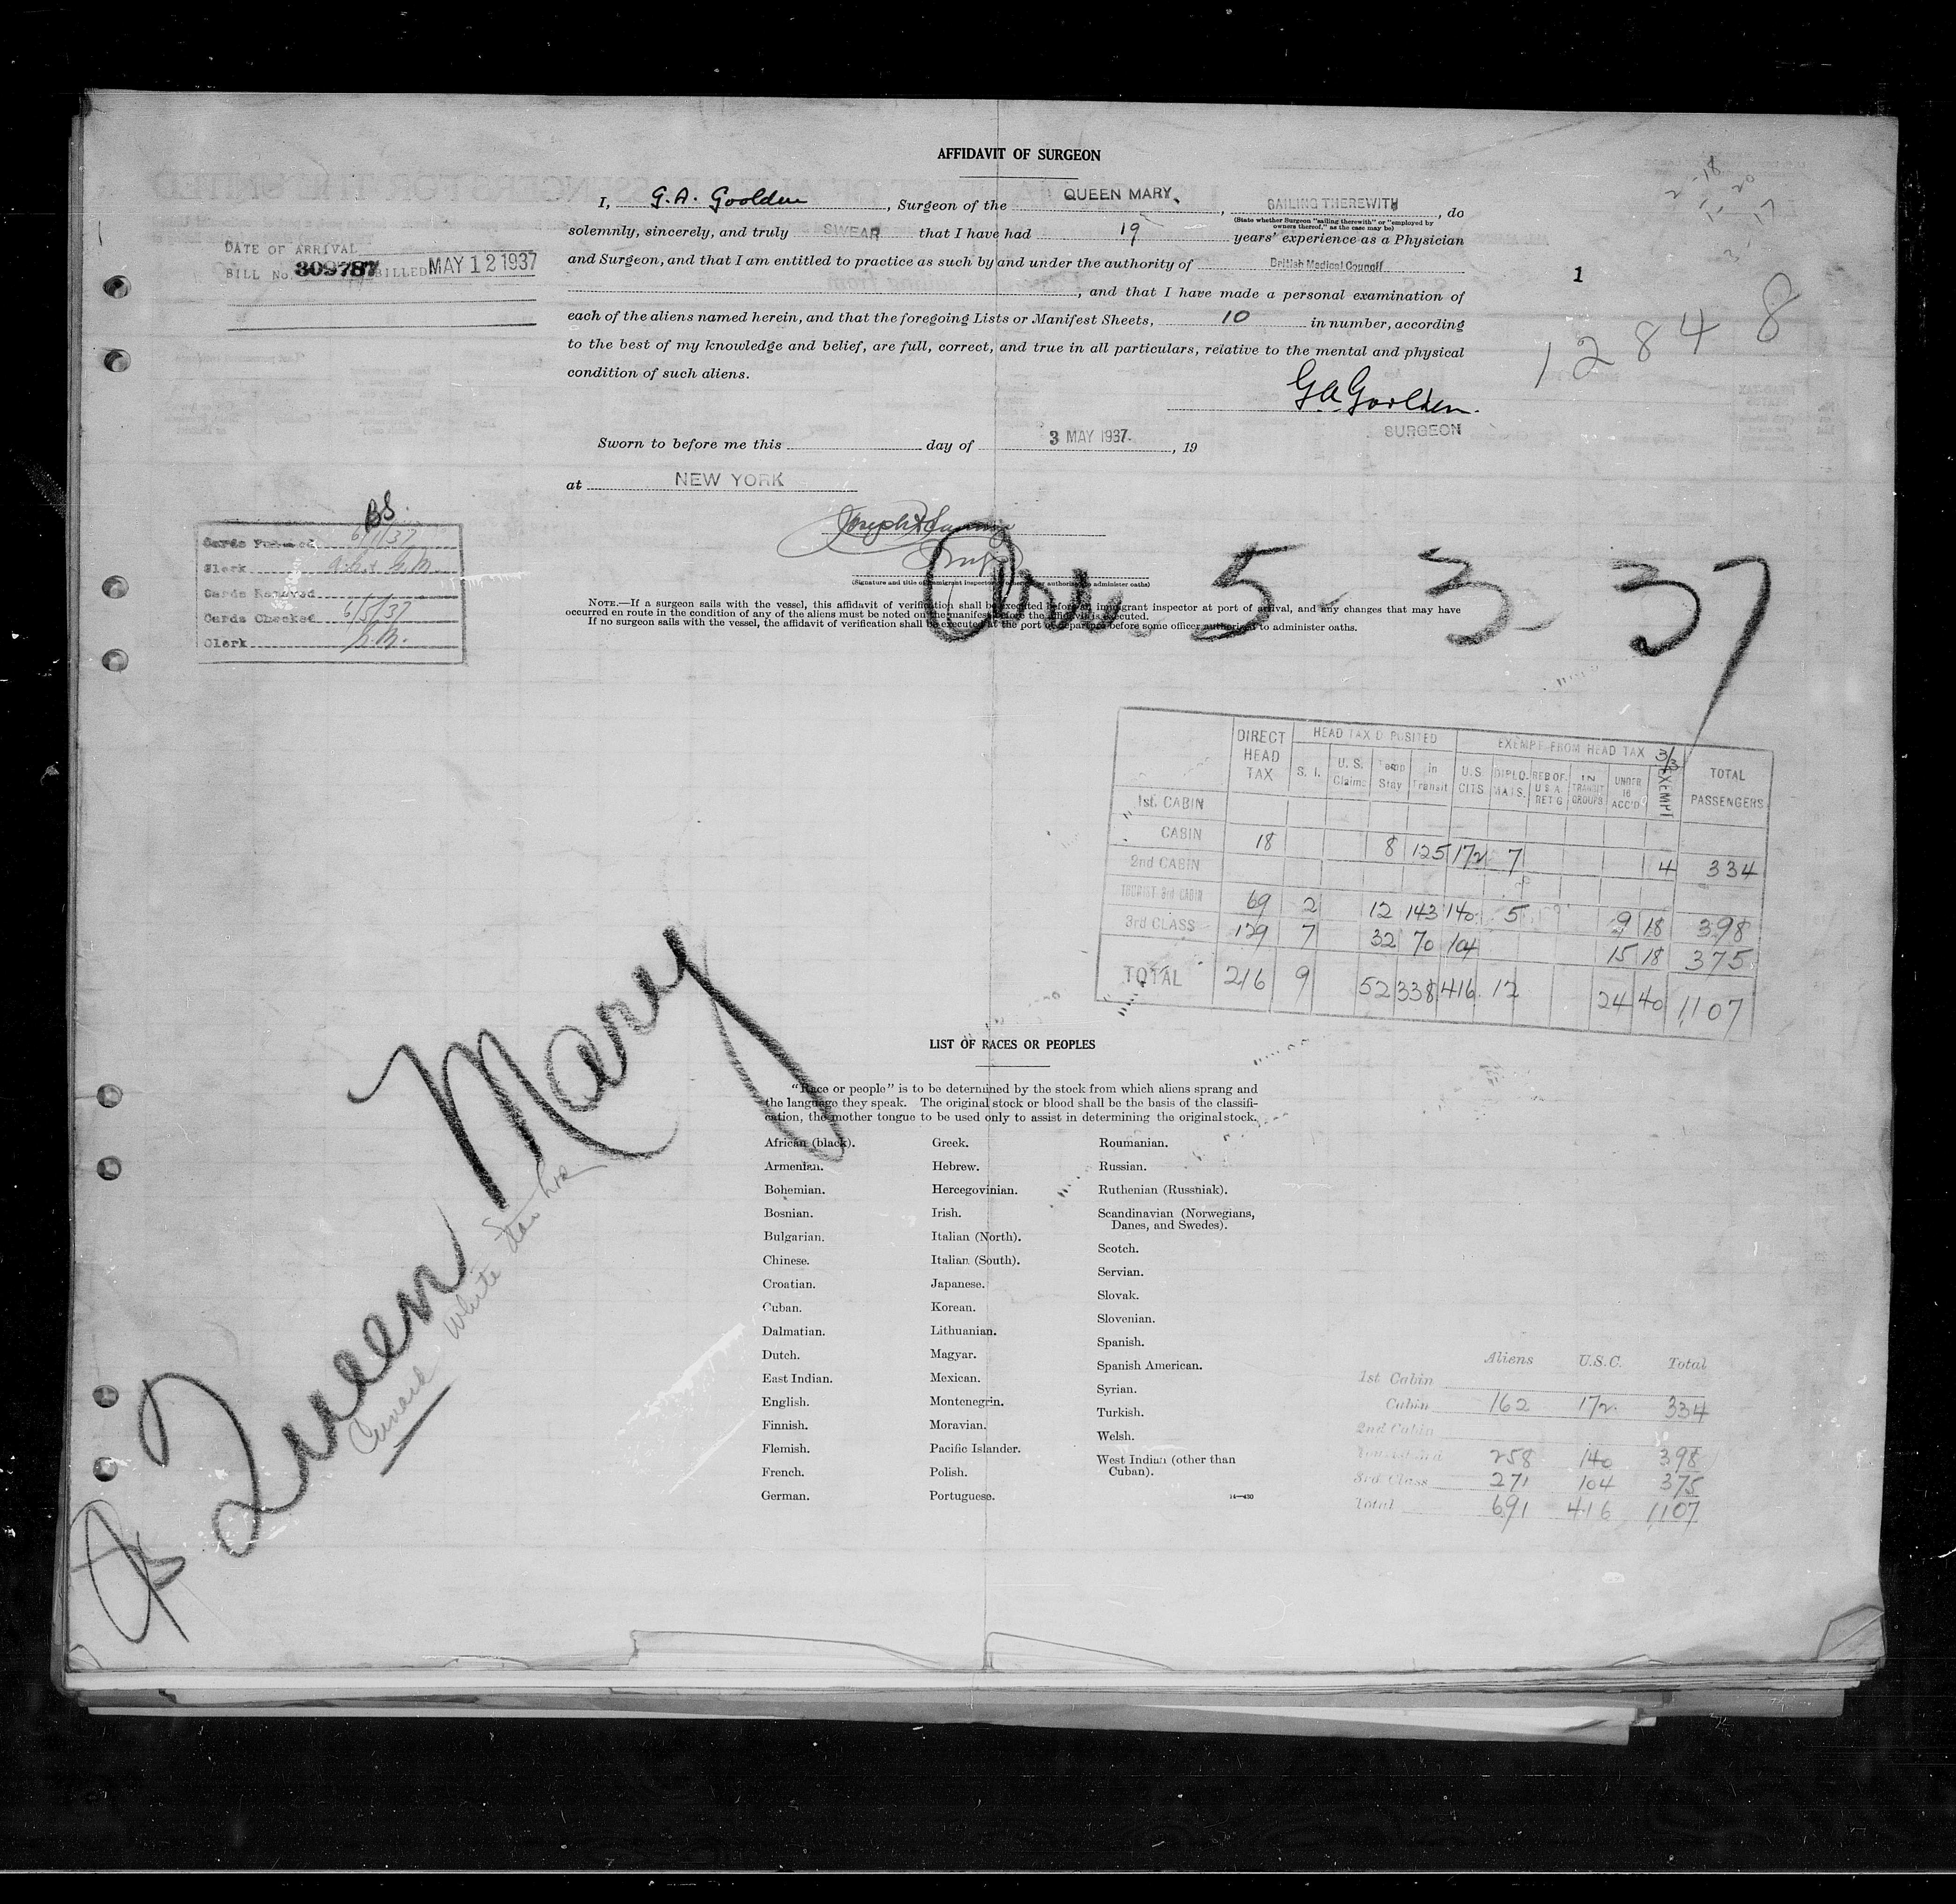 AFFIDAVIT OF SURGEON
I, G. A. Goolden, Surgeon of the QUEEN MARY, SAILING THEREWITH, do
(State whether Surgeon "sailing therewith" or "employed by
owners thereof," as the case may be)
solemnly, sincerely, and truly SWEAR that I have had 19 years' experience as a Physician
and Surgeon, and that I am entitled to practice as such by and under the authority of British Medical Council
, and that I have made a personal examination of
each of the aliens named herein, and that the foregoing Lists or Manifest Sheets, 10 in number, according
to the best of my knowledge and belief, are full, correct, and true in all particulars, relative to the mental and physical
condition of such aliens.
G A Goolden.
SURGEON
Sworn to before me this day of 3 MAY 1937, 19
at NEW YORK
DATE OF ARRIVAL
BILL No. 309787 BILLED MAY 12 1937
1
12848
2-18
1-20
3-17
BS.
Cards Punched 6/1/37
Clerk
Cards Received
Cards Checked 6/5/37
Clerk h.m.
(Signature and title of immigrant inspector or other officer authorized to administer oaths)
Arr. 5-3-37
NOTE.—If a surgeon sails with the vessel, this affidavit of verification shall be executed before an immigrant inspector at port of arrival, and any changes that may have
occurred en route in the condition of any of the aliens must be noted on the manifest before the affidavit is executed.
If no surgeon sails with the vessel, the affidavit of verification shall be executed at the port of departure before some officer authorized to administer oaths.
DIRECT HEAD TAX HEAD TAX DEPOSITED EXEMPT FROM HEAD TAX 3/3 TOTAL PASSENGERS
S. I. U. S. Claims Temp Stay In Transit U.S. CITS. DIPLOMATS. RES OF U S A RET'G IN TRANSIT GROUPS UNDER 16 ACC'D EXEMPT
1st. CABIN
CABIN 18 8 125 172 7 4 334
2nd CABIN
TOURIST 3rd CABIN 69 2 12 143 140 5 9 18 398
3rd CLASS 129 7 32 70 104 15 18 375
TOTAL 216 9 52 338 416 12 24 40 1107
Queen Mary
Cunard White Star Line
LIST OF RACES OR PEOPLES
"Race or people" is to be determined by the stock from which aliens sprang and
the language they speak. The original stock or blood shall be the basis of the classifi-
cation, the mother tongue to be used only to assist in determining the original stock.
African (black).
Armenian.
Bohemian.
Bosnian.
Bulgarian.
Chinese.
Croatian.
Cuban.
Dalmatian.
Dutch.
East Indian.
English.
Finnish.
Flemish.
French.
German.
Greek.
Hebrew.
Hercegovinian.
Irish.
Italian (North).
Italian (South).
Japanese.
Korean.
Lithuanian.
Magyar.
Mexican.
Montenegrin.
Moravian.
Pacific Islander.
Polish.
Portuguese.
Roumanian.
Russian.
Ruthenian (Russniak).
Scandinavian (Norwegians,
Danes, and Swedes).
Scotch.
Servian.
Slovak.
Slovenian.
Spanish.
Spanish American.
Syrian.
Turkish.
Welsh.
West Indian (other than
Cuban).
14—430
Aliens U.S.C. Total
1st Cabin
Cabin 162 172 334
2nd Cabin
Tourist 3rd 258 140 398
3rd Class 271 104 375
Total 691 416 1107